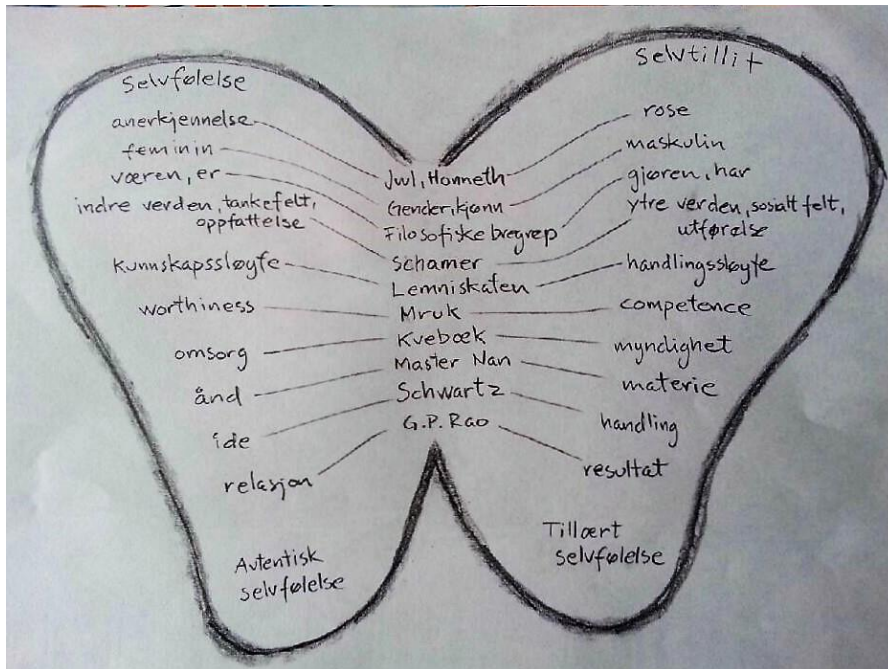 Selvfølelse
anerkjennelse
feminin
væren, er
indre verden, tankefelt,
oppfattelse
kunnskapssløyfe
worthiness
omsorg
ånd
ide
relasjon
Autentisk
selvfølelse
Juul, Honneth
Gender, kjønn
Filosofiske bregrep
Schamer
Lemniskaten
Mruk
Kvebæk
Master Nan
Schwartz
G.P. Rao
Selvtillit
rose
maskulin
gjøren, har
ytre verden, sosialt felt,
utførelse
handlingssløyfe
competence
myndighet
materie
handling
resultat
Tillært
selvfølelse